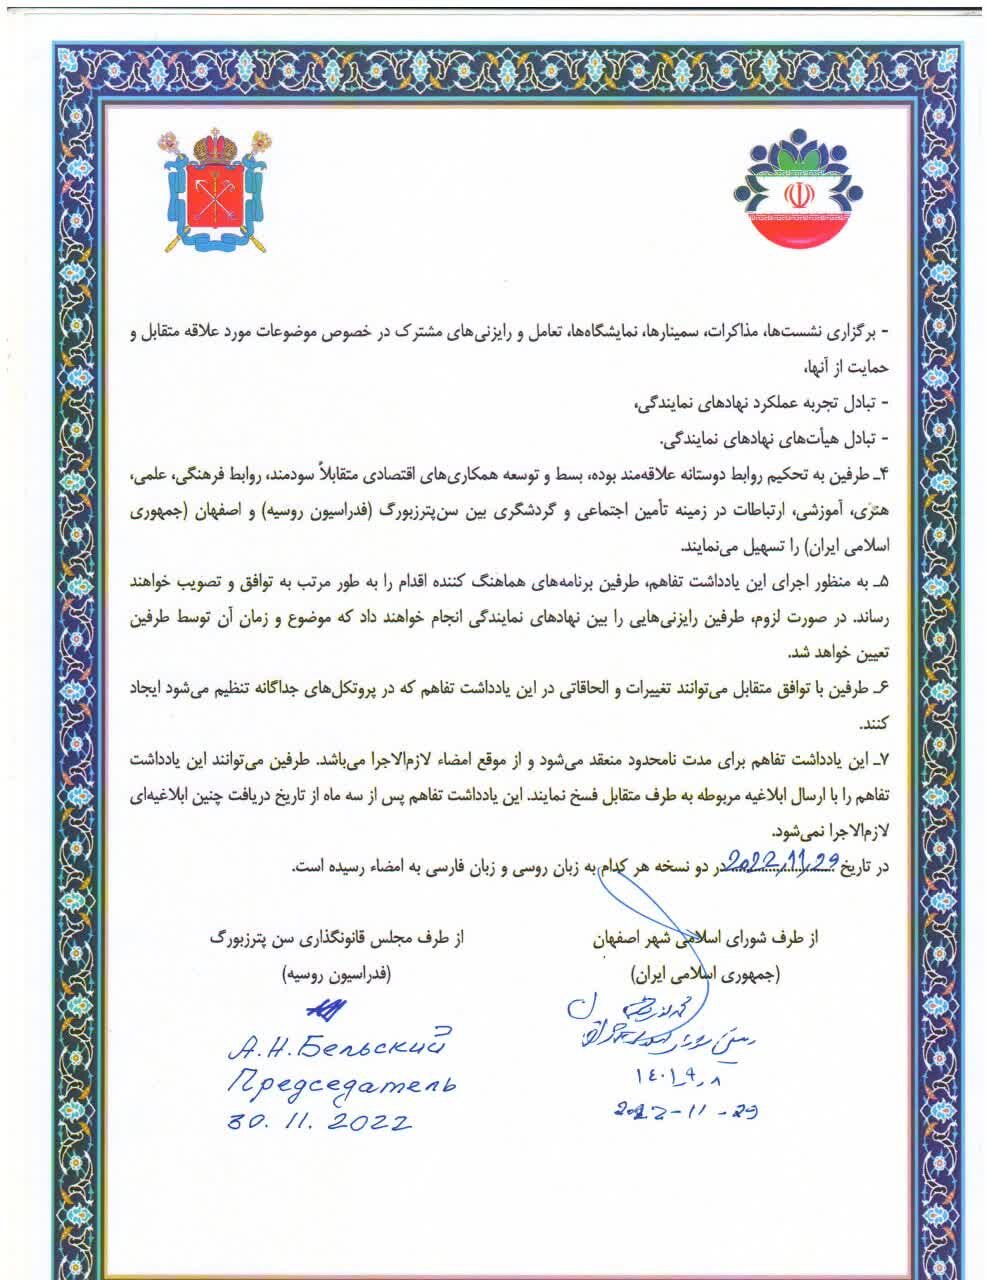 - برگزاری نشست‌ها، مذاکرات، سمینارها، نمایشگاه‌ها، تعامل و رایزنی‌های مشترک در خصوص موضوعات مورد علاقه متقابل و
حمایت از آنها،
- تبادل تجربه عملکرد نهادهای نمایندگی،
- تبادل هیأت‌های نهادهای نمایندگی.
۴ـ طرفین به تحکیم روابط دوستانه علاقه‌مند بوده، بسط و توسعه همکاری‌های اقتصادی متقابلاً سودمند، روابط فرهنگی، علمی،
هنری، آموزشی، ارتباطات در زمینه تأمین اجتماعی و گردشگری بین سن‌پترزبورگ (فدراسیون روسیه) و اصفهان (جمهوری
اسلامی ایران) را تسهیل می‌نمایند.
۵ـ به منظور اجرای این یادداشت تفاهم، طرفین برنامه‌های هماهنگ کننده اقدام را به طور مرتب به توافق و تصویب خواهند
رساند. در صورت لزوم، طرفین رایزنی‌هایی را بین نهادهای نمایندگی انجام خواهند داد که موضوع و زمان آن توسط طرفین
تعیین خواهد شد.
۶ـ طرفین با توافق متقابل می‌توانند تغییرات و الحاقاتی در این یادداشت تفاهم که در پروتکل‌های جداگانه تنظیم می‌شود ایجاد
کنند.
۷ـ این یادداشت تفاهم برای مدت نامحدود منعقد می‌شود و از موقع امضاء لازم‌الاجرا می‌باشد. طرفین می‌توانند این یادداشت
تفاهم را با ارسال ابلاغیه مربوطه به طرف متقابل فسخ نمایند. این یادداشت تفاهم پس از سه ماه از تاریخ دریافت چنین ابلاغیه‌ای
لازم‌الاجرا نمی‌شود.
در تاریخ 2022,11,29 در دو نسخه هر کدام به زبان روسی و زبان فارسی به امضاء رسیده است.
از طرف شورای اسلامی شهر اصفهان
(جمهوری اسلامی ایران)
۱۴۰۱٫۹٫۸
2022-11-29
از طرف مجلس قانونگذاری سن پترزبورگ
(فدراسیون روسیه)
А.Н.Бельский
Председатель
30.11.2022